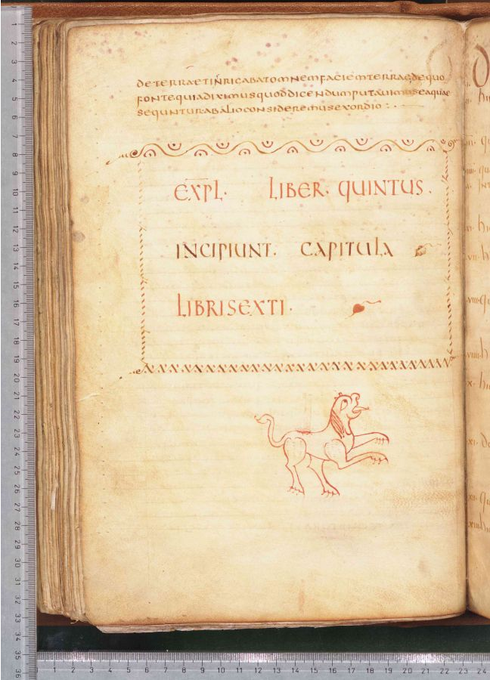 deterraetinrigabatomnemfaciemterrae dequo
fontequiadiximusquoddicendumputauimus eaquae
sequnturabalioconsideremusexordio :
EXPL· LIBER· QUINTUS·
INCIPIUNT· CAPITULA
LIBRISEXTI·